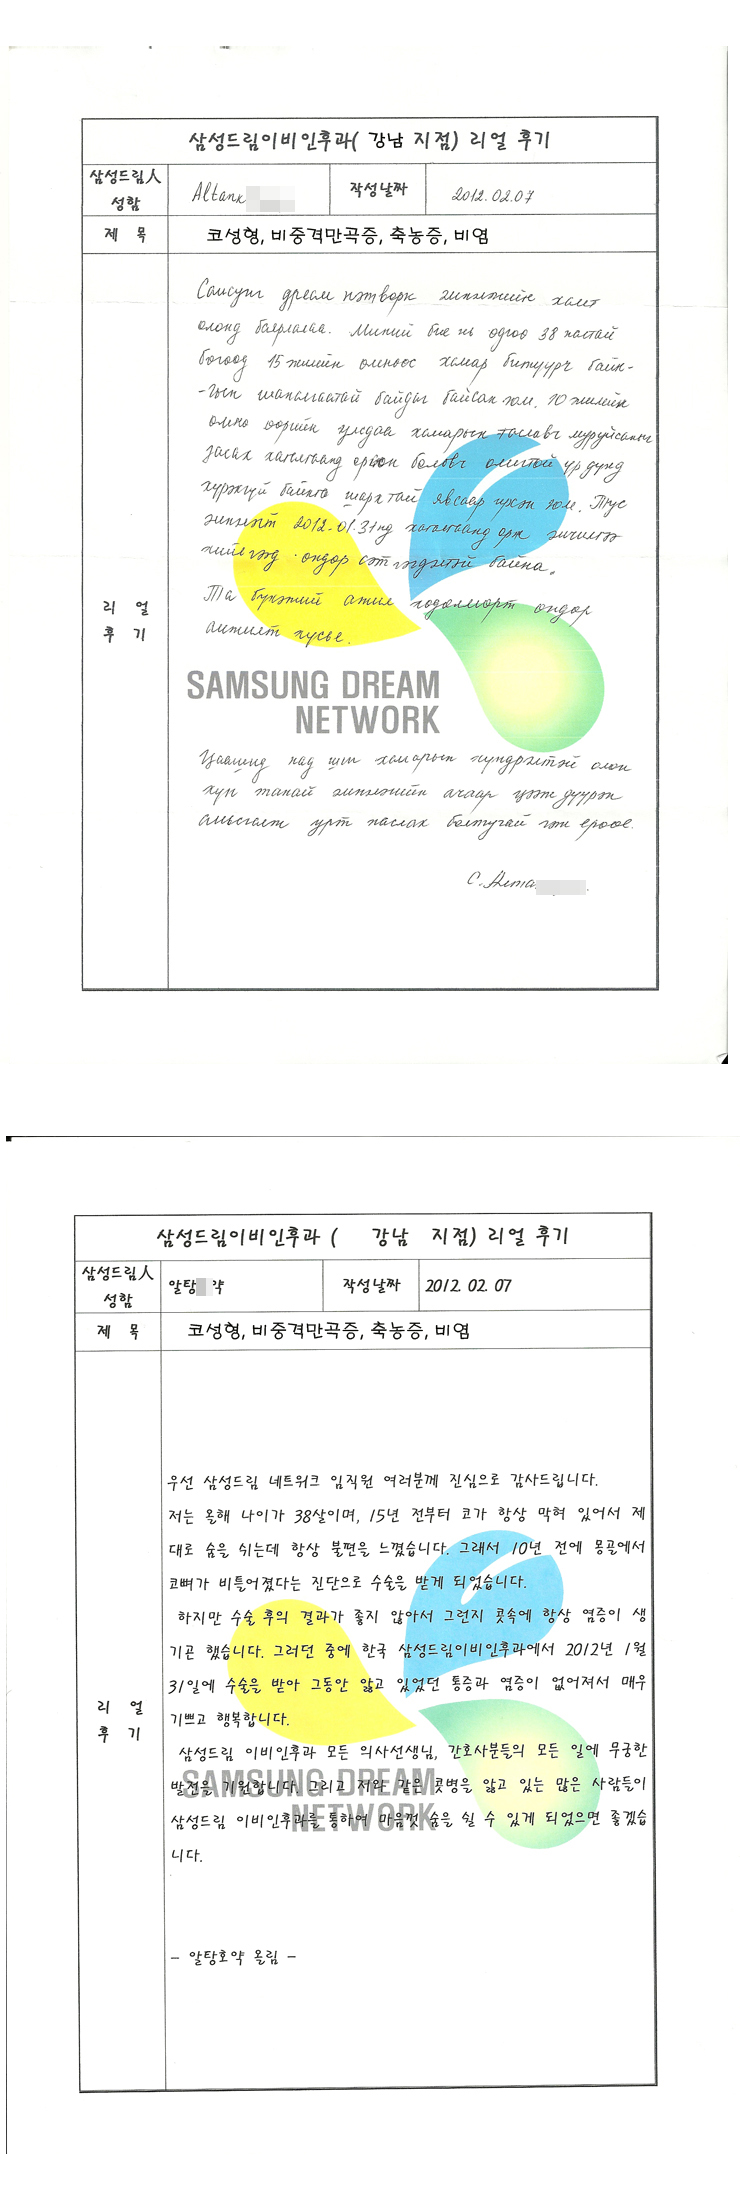 삼성드림이비인후과( 강남 지점) 리얼 후기
삼성드림人 성함
Altanк
작성날짜
2012.02.07
제 목
코성형, 비중격만곡증, 축농증, 비염
리 얼 후 기
Самсунг дреам нэтворк эмнэлгийн хамт
олонд баярлалаа. Миний бие нь одоо 38 настай
бөгөөд 15 жилийн өмнөөс хамар битуурч байн-
-гын шаналгаатай байдаг байсан юм. 10 жилийн
өмнө өөрийн улсдаа хамарын таславч муруйсаныг
засах хагалгаанд орсон боловч олигтой үр дүнд
хүрэхгүй байнга шархтай явсаар ирсэн юм. Тус
эмнэлэгт 2012.01.31нд хагалгаанд орж эмчилгээ
хийлгээд өндөр сэтгэгдэлтэй байна.
Та бүхэний ажил хөдөлмөрт өндөр
амжилт хүсье.
SAMSUNG DREAM
NETWORK
Цаашид над шиг хамарын хүндрэлтэй олон
хүн танай эмнэлэгийн ачаар цээж дүүрэн
амьсгалж урт наслах болтугай гэж ерөөе.
С. Алта
삼성드림이비인후과 ( 강남 지점) 리얼 후기
삼성드림人 성함
알탕 약
작성날짜
2012. 02. 07
제 목
코성형, 비중격만곡증, 축농증, 비염
리 얼 후 기
우선 삼성드림 네트워크 임직원 여러분께 진심으로 감사드립니다.
저는 올해 나이가 38살이며, 15년 전부터 코가 항상 막혀 있어서 제
대로 숨을 쉬는데 항상 불편을 느꼈습니다. 그래서 10년 전에 몽골에서
코뼈가 비틀어졌다는 진단으로 수술을 받게 되었습니다.
하지만 수술 후의 결과가 좋지 않아서 그런지 콧속에 항상 염증이 생
기곤 했습니다. 그러던 중에 한국 삼성드림이비인후과에서 2012년 1월
31일에 수술을 받아 그동안 앓고 있었던 통증과 염증이 없어져서 매우
기쁘고 행복합니다.
삼성드림 이비인후과 모든 의사선생님, 간호사분들의 모든 일에 무궁한
발전을 기원합니다. 그리고 저와 같은 콧병을 앓고 있는 많은 사람들이
삼성드림 이비인후과를 통하여 마음껏 숨을 쉴 수 있게 되었으면 좋겠습
니다.
SAMSUNG DREAM
NETWORK
- 알탕호약 올림 -